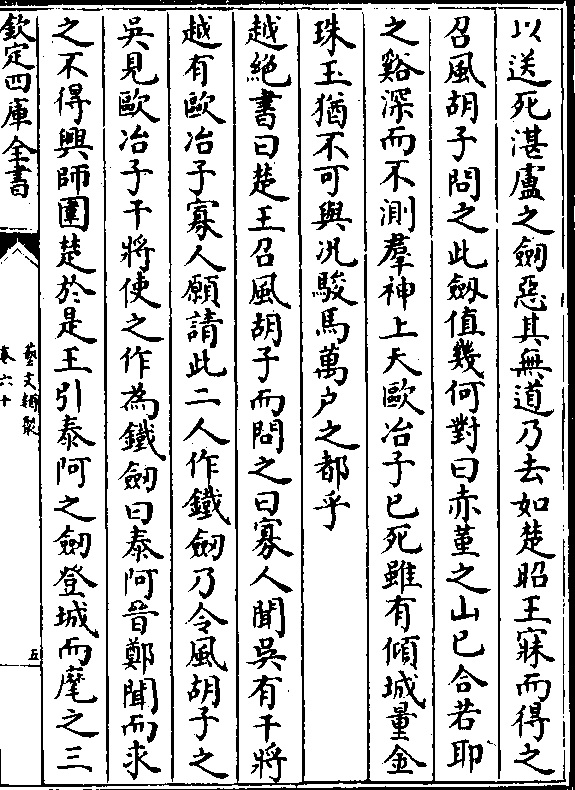 以送死湛盧之劒惡其無道乃去如楚昭王寐而得之
召風胡子問之此劒值幾何對曰赤堇之山已合若耶
之谿深而不測羣神上天歐冶子已死雖有傾城量金
珠玉猶不可與况駿馬萬户之都乎
越絶書曰楚王召風胡子而問之曰寡人聞吳有干將
越有歐冶子寡人願請此二人作鐵劒乃令風胡子之
吳見歐冶子干將使之作為鐵劒曰泰阿晉鄭聞而求
之不得興師圍楚於是王引泰阿之劒登城而麾之三
欽定四庫全書
藝文類聚
卷六十
五